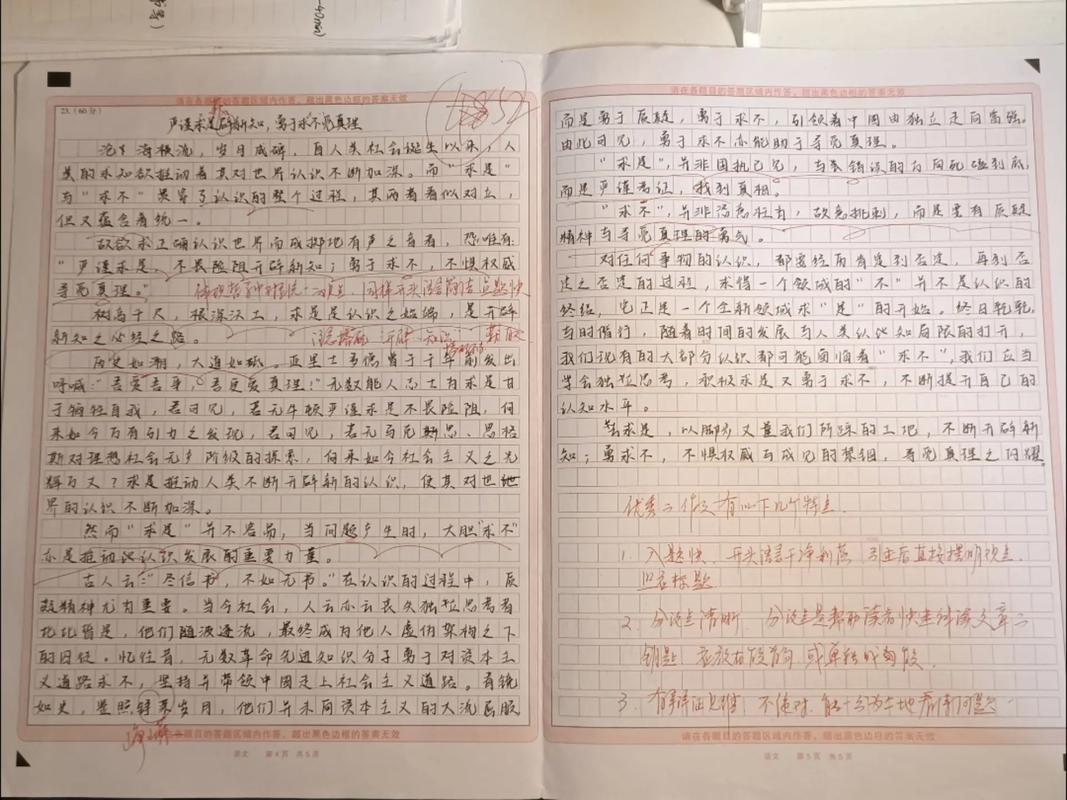 -40min)
请在各题目的答题区域内作答，超出黑色边框的答案无效
23.（60分）
52
严谨求是辟新知，勇于求不觅真理
海横流，岁月成碎，自人类社会诞生以来，人
类的求知欲推动着其对世界认识不断加深。而“求是”
与“求不”贯穿了认识的整个过程，其两者看似对立，
但又蕴含着统一。
故欲求正确认识世界而成掷地有声之音者，恐唯有：
“严谨求是，不畏险阻开辟新知；勇于求不，不惧权威
寻觅真理。”
树高千尺，根深沃土，求是是认识之始端，是开辟
新知之必经之路。
历史如潮，大道如砥。亚里士多德曾于千年前发出
呼喊：“吾爱吾师，吾更爱真理！”无数能人志士为求是甘
于牺牲自我，君可见，若无牛顿严谨求是不畏险阻，何
来如今万有引力之发现，君可见，若无马克思、恩格
斯对理想社会无产阶级的探索，何来如今社会主义之光
辉万丈？求是推动人类不断开辟新的认识，使其对世
界的认识不断加深。
然而“求是”并不容易，当问题产生时，大胆“求不”
亦是推动认识发展的重要力量。
古人云：“尽信书，不如无书。”在认识的过程中，质
疑精神尤为重要。当今社会，人云亦云丧失独立思考者
比比皆是，他们随波逐流，最终成为他人虚伪架构之下
的囚徒。忆往昔，无数革命先进知识分子勇于对资本主
义道路求不，坚持并带领中国走上社会主义道路。有镜
如史，鉴照峥嵘岁月，他们并未向资本主义的大流屈服
峥嵘
请在各题目的答题区域内作答，超出黑色边框的答案无效
语文 第4页 共5页
请在各题目的答题区域内作答，超出黑色边框的答案无效
而是勇于质疑，勇于求不，引领着中国由独立走向富强。
由此可见，勇于求不亦能助于寻觅真理。
“求是”，并非固执己见，与表错误的方向死磕到底，
而是严谨考证，找到真相。
“求不”，并非肆意狂妄，破意挑刺，而是要有质疑
精神与寻觅真理的勇气。
对任何事物的认识，都要经历肯定到否定，再到否
定之否定的过程，求得一个领域的“不”并不是认识的
终结，它正是一个全新领域求“是”的开始。终日乾乾，
与时偕行，随着时间的发展与人类认知局限的打开，
我们现有的大部分认识都可能面临着“求不”，我们应当
学会独立思考，积极求是又勇于求不，不断提升自己的
认知水平。
去求是，以脚步丈量我们所踩的土地，不断开辟新
知；勇求不，不惧权威与成见的禁锢，寻觅真理之闪耀。
优秀作文有以下几个特点
1. 入题快，开头语言干净利落，引出后直接摆明观点
2. 分论点清晰，分论点是帮助读者快速解读文章
钥匙，应放在段首句，或单独成句段。
3. 有辩证思维，不绝对，能一分为二地看待问题
请在各题目的答题区域内作答，超出黑色边框的答案无效
语文 第5页 共5页